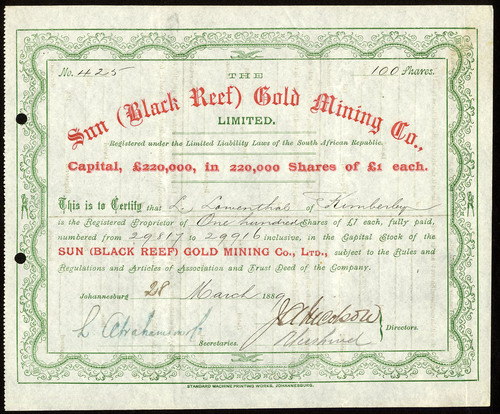 THE
No. 425
100 Shares.
Sun (Black Reef) Gold Mining Co.,
LIMITED.
Registered under the Limited Liability Laws of the South African Republic.
Capital, £220,000, in 220,000 Shares of £1 each.
This is to Certify that L. Lowenthal of Kimberley
is the Registered Proprietor of One hundred Shares of £1 each, fully paid,
numbered from 29817 to 29916 inclusive, in the Capital Stock of the
SUN (BLACK REEF) GOLD MINING Co., LTD., subject to the Rules and
Regulations and Articles of Association and Trust Deed of the Company.
Johannesburg 28 March 1889
Directors.
Secretaries.
STANDARD MACHINE PRINTING WORKS, JOHANNESBURG.